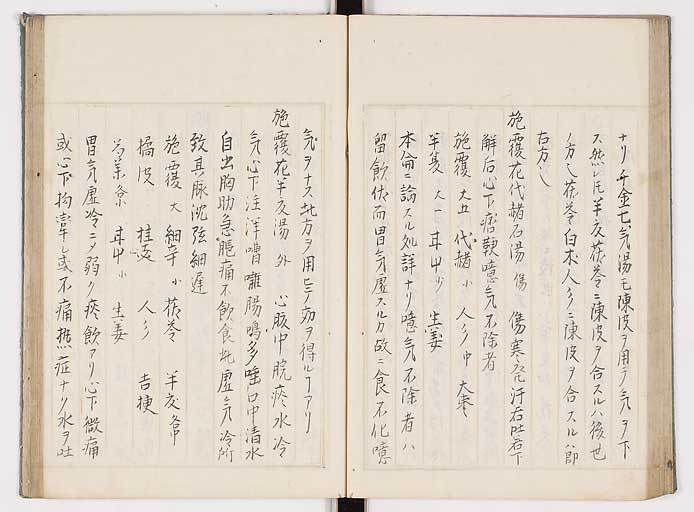 ナリ千金七気湯モ陳皮ヲ用テ気ヲ下
ス然レ𪜈半夏茯苓ニ陳皮ヲ合スルハ後世
ノ方也茯苓白朮人参ニ陳皮ヲ合スルハ即
古方也
旋覆花代赭石湯 傷 傷寒発汗若吐若下
解后心下痞鞕噫気不除者
旋覆 大五 代赭 小 人参 中 大棗
半夏 大一 甘中 少 生姜
本論ニ論スル処詳ナリ噫気不除者ハ
留飲伏而胃気虚スルカ故ニ食不化噫
気ヲナス此方ヲ用ヒテ効ヲ得ルヿアリ
旋覆花半夏湯 外 心腹中脘痰水冷
気心下汪洋嘈囃腸鳴多唾口中清水
自出胸肋急脹痛不飲食此虚気冷所
致其脉沈弦細遅
旋覆 大 細辛 小 茯苓 半夏 各中
橘皮 桂 人参 吉梗
芍薬 各 甘 小 生姜
胃気虚冷ニ〆弱ク痰飲アリ心下微痛
或心下拘攣シ或不痛 症ナリ水ヲ吐